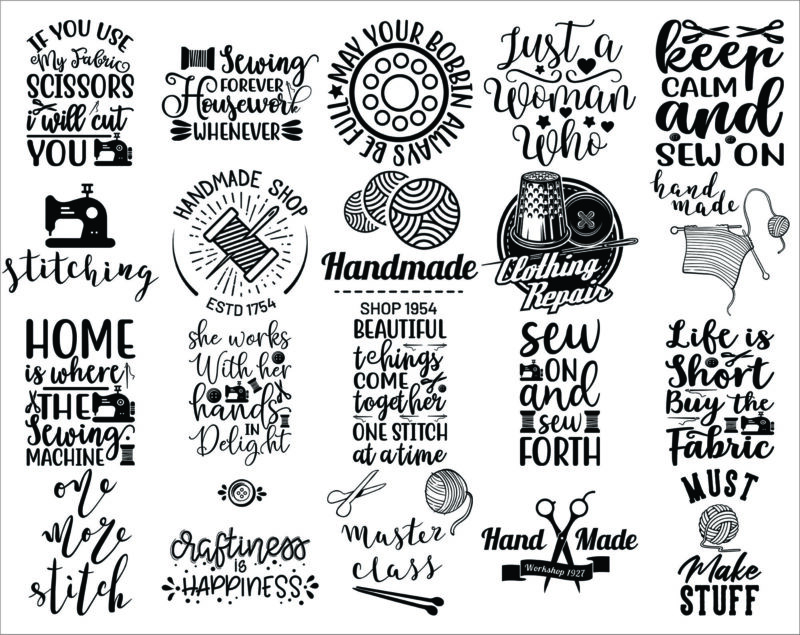 IF YOU USE
My Fabric
SCISSORS
i will cut
YOU
Sewing
FOREVER
Housework
WHENEVER
MAY YOUR BOBBIN ALWAYS BE FULL
Just a
Woman
Who
keep
CALM
and
SEW ON
stitching
HANDMADE SHOP
ESTD 1754
Handmade
SHOP 1954
Clothing
Repair
hand
made
HOME
is where
THE
Sewing
MACHINE
she works
With her
hands
IN
Delight
BEAUTIFUL
tehings
COME
together
ONE STITCH
at a time
sew
ON
and
sew
FORTH
Life is
Short
Buy the
Fabric
one
more
stitch
craftiness
IS
HAPPINESS
master
class
Hand Made
Workshop 1927
MUST
Make
STUFF